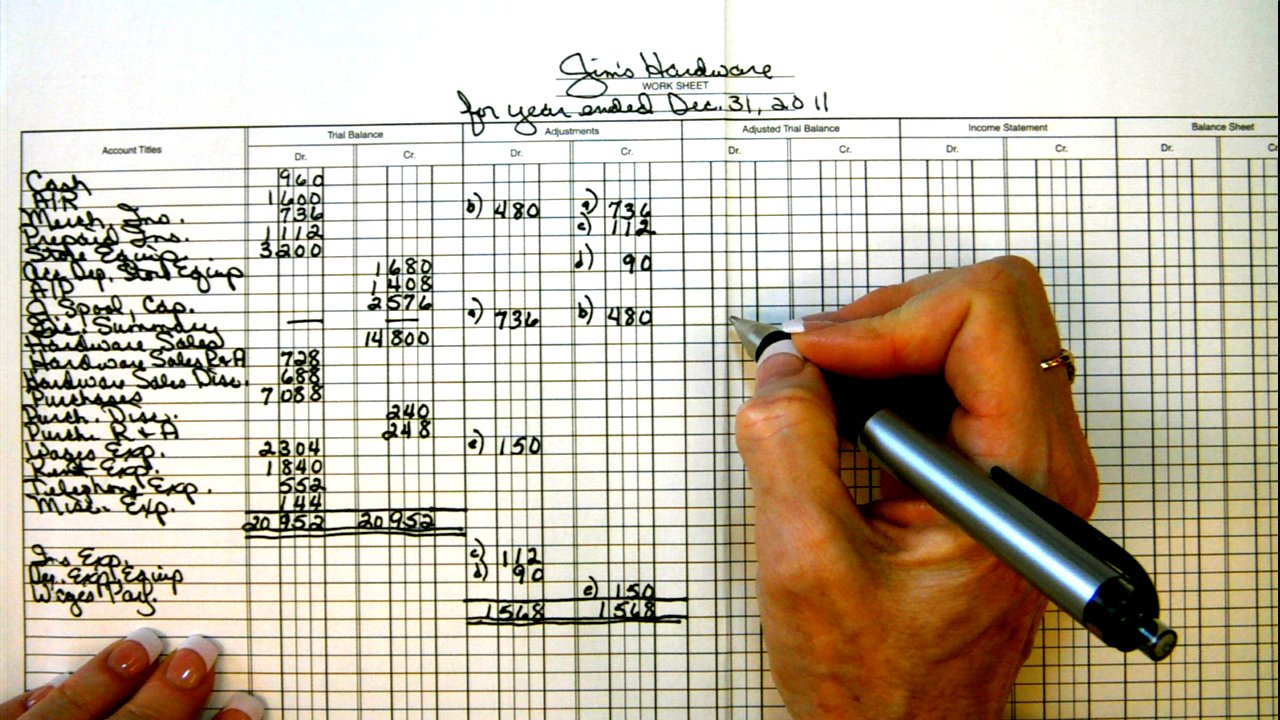 Jim's Hardware
WORK SHEET
for year ended Dec. 31, 2011
Account Titles Trial Balance Adjustments Adjusted Trial Balance Income Statement Balance Sheet
Dr. Cr. Dr. Cr. Dr. Cr. Dr. Cr. Dr. C
Cash 960
A/R 1600
Merch. Ins. 736 b) 480 a) 736
Prepaid Ins. 1112 c) 112
Store Equip. 3200
Acc. Dep. Store Equip 1680 d) 90
A/P 1408
Spool, Cap. 2576
Inc. Summary — — a) 736 b) 480
Hardware Sales 14800
Hardware Sales R+A 728
Hardware Sales Disc. 688
Purchases 7088
Purch. Disc. 240
Purch. R+A 248
Wages Exp. 2304 e) 150
Rent Exp. 1840
Telephone Exp. 552
Misc. Exp. 144
20952 20952
Ins Exp. c) 112
Dep. Exp. Equip d) 90
Wages Pay. e) 150
1568 1568